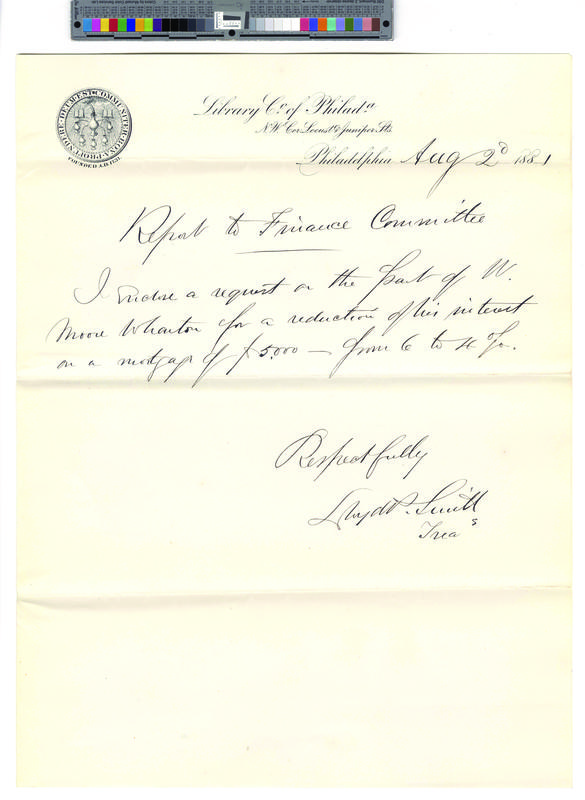 COMMUNITER · BONA · PROFUNDERE · DEUM · EST
FOUNDED A.D. 1731.
Library Co. of Philada
N.W. Cor. Locust & Juniper Sts.
Philadelphia Aug 2d 1881
Report to Finance Committee
I enclose a request on the part of W.
Moore Wharton for a reduction of his interest
on a mortgage of $5.000 — from 6 to 4 %.
Respectfully
Lloyd P. Smith
Treas